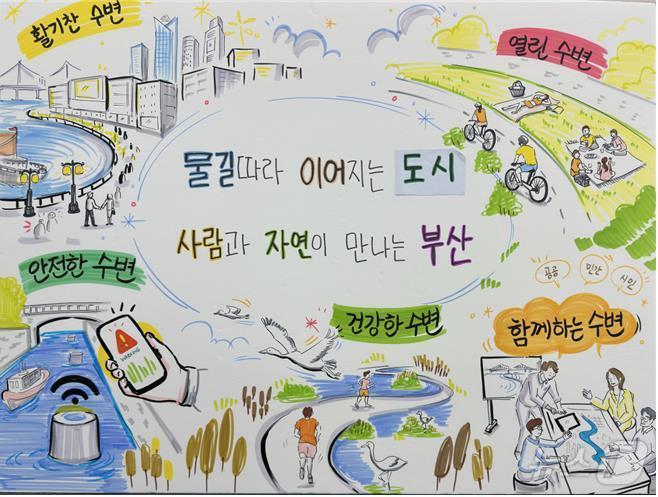 활기찬 수변
열린 수변
물길따라 이어지는 도시
사람과 자연이 만나는 부산
안전한 수변
WARNING
건강한 수변
공공
민간
시민
함께하는 수변